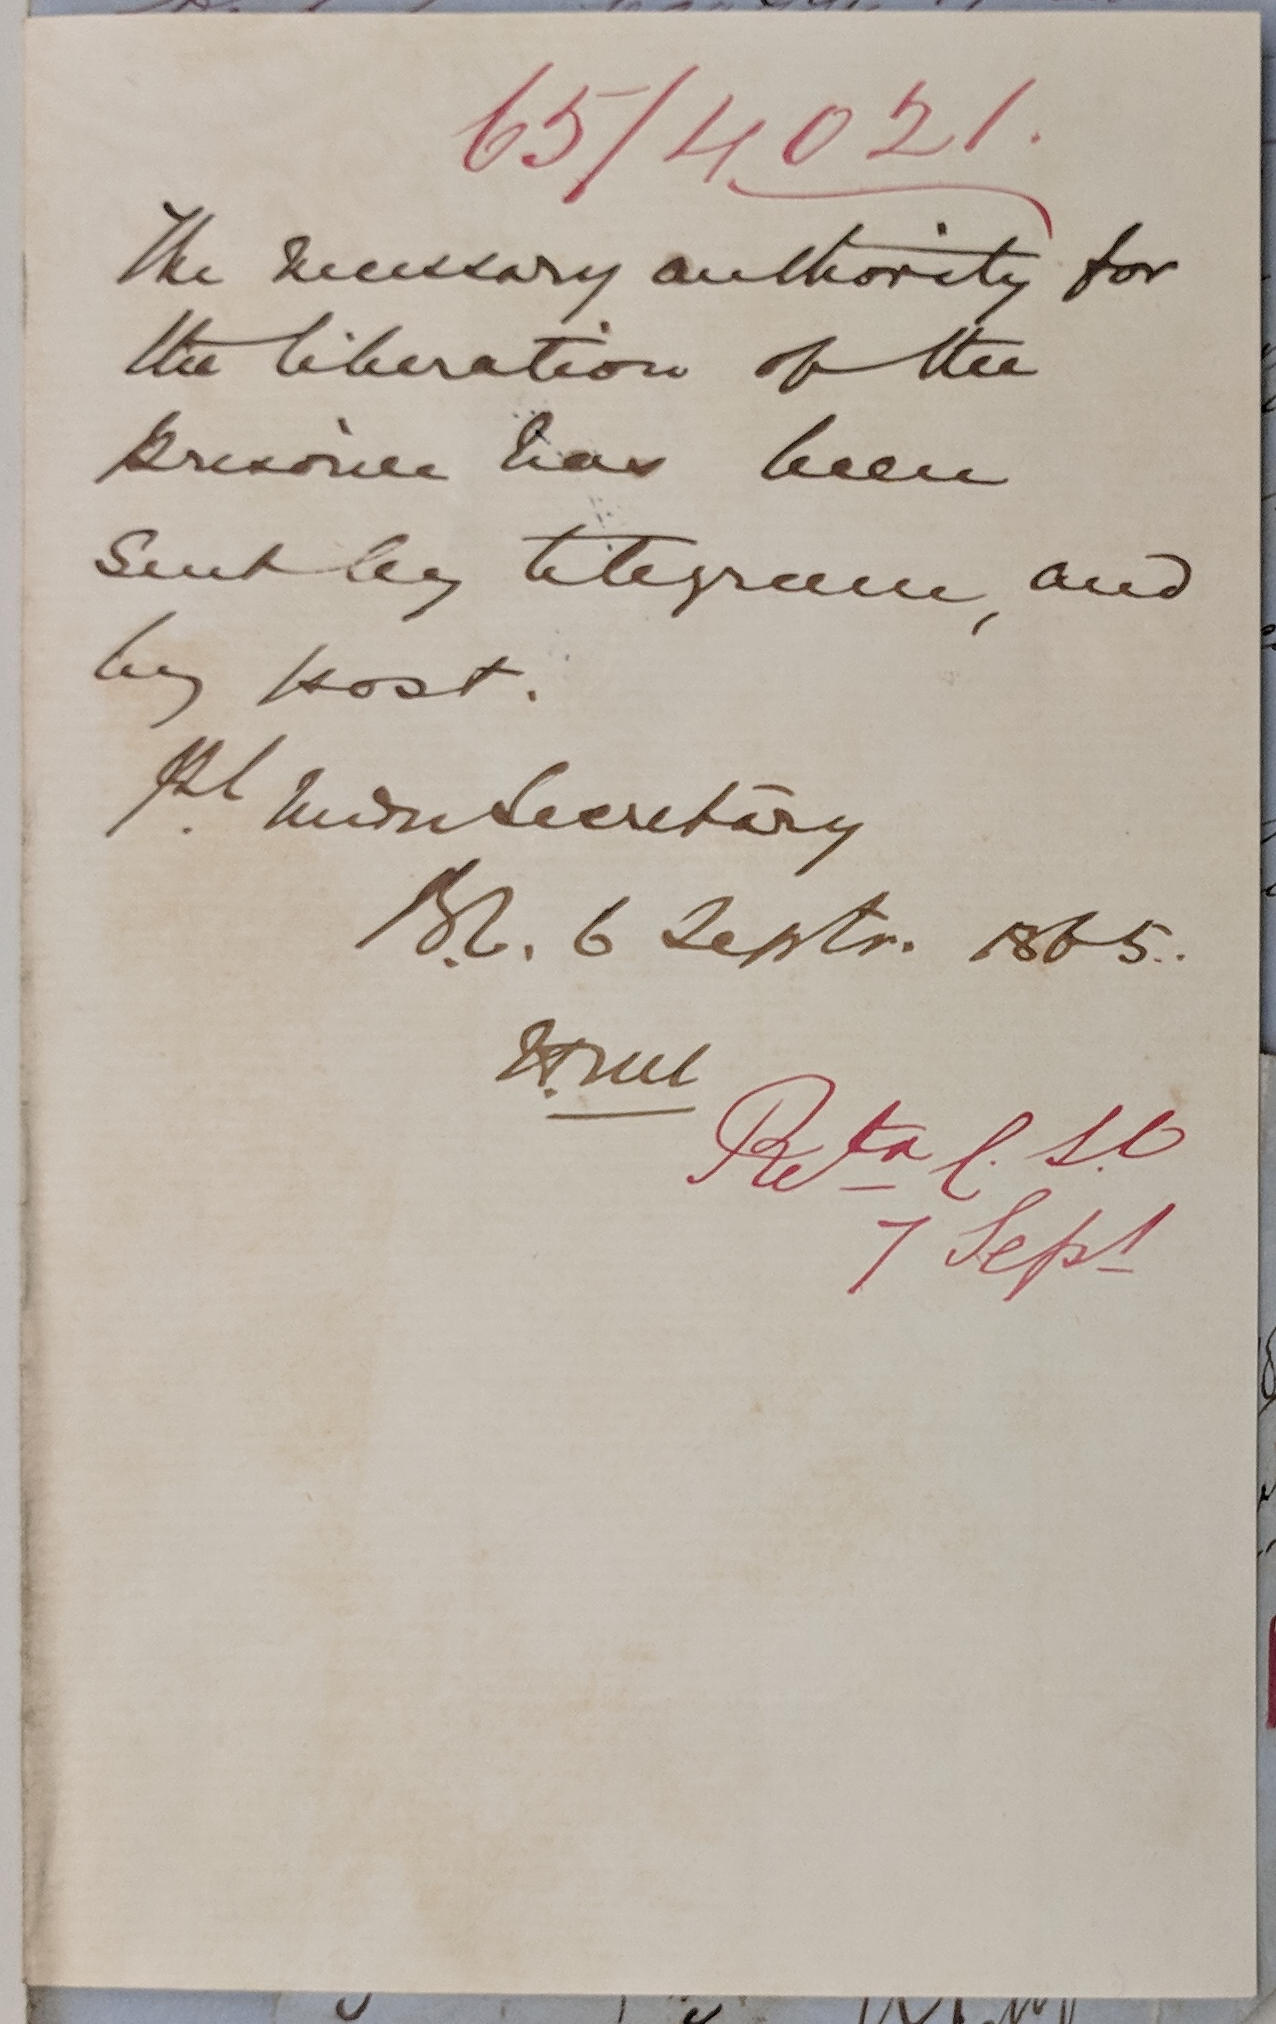 65/4021.
The necessary authority for
the liberation of the
prisoner has been
sent by telegram, and
by post.
Pl Under Secretary
B.C. 6 Septr. 1865.
H.
Retd C.S.O
7 Sept